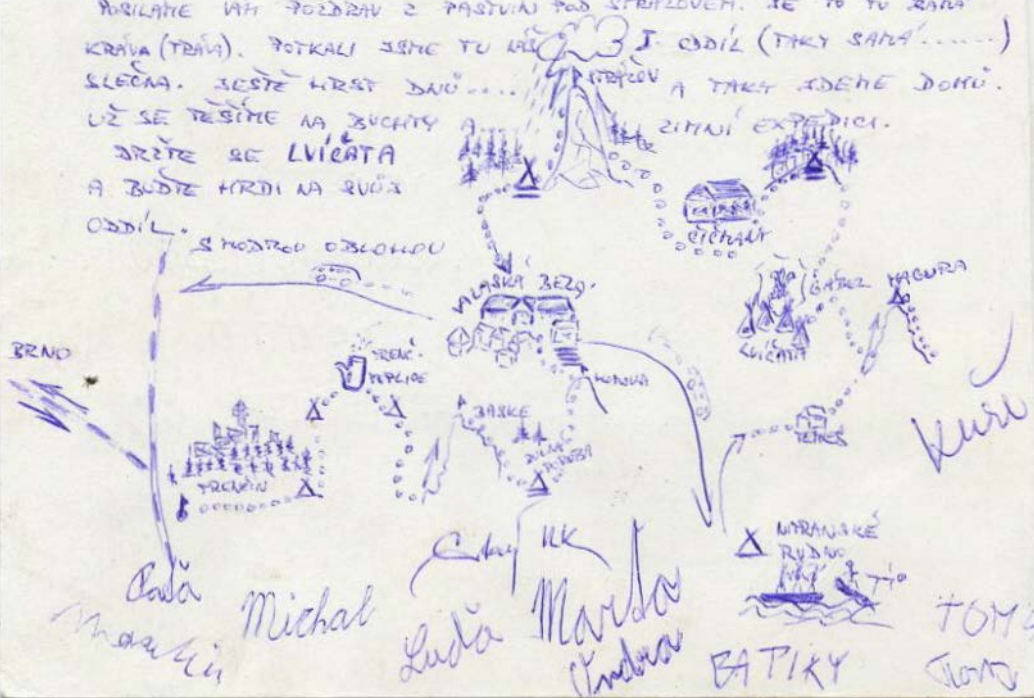 POSÍLÁME VÁM POZDRAV Z PASTVIN POD STRÁŽOVEM. JE TO TU SAMÁ
KRÁVA (TRÁVA). POTKALI JSME TU NÁŠ I. ODDÍL (TAKY SAMÁ......)
SLEČNA. JEŠTĚ HRST DNŮ.... A TAKY JDEME DOMŮ.
UŽ SE TĚŠÍME NA BUCHTY A ZIMNÍ EXPEDICI.
DRŽTE SE LVÍČATA
A BUĎTE HRDI NA SVŮJ
ODDÍL.
S MODROU OBLOHOU
STRÁŽOV
ČIČMANY
VALASKÁ BELÁ
GÁPEL
MAGURA
LVÍČATA
BRNO
TRENČ.
TEPLICE
HOMOLKA
BASKÉ
DOLNÁ
PORUBA
TEMEŠ
TRENČÍN
NITRANSKÉ
RUDNO
Kuře
Caďa
Michal
Luďa
Marta
Ondra
BATIKY
TOM